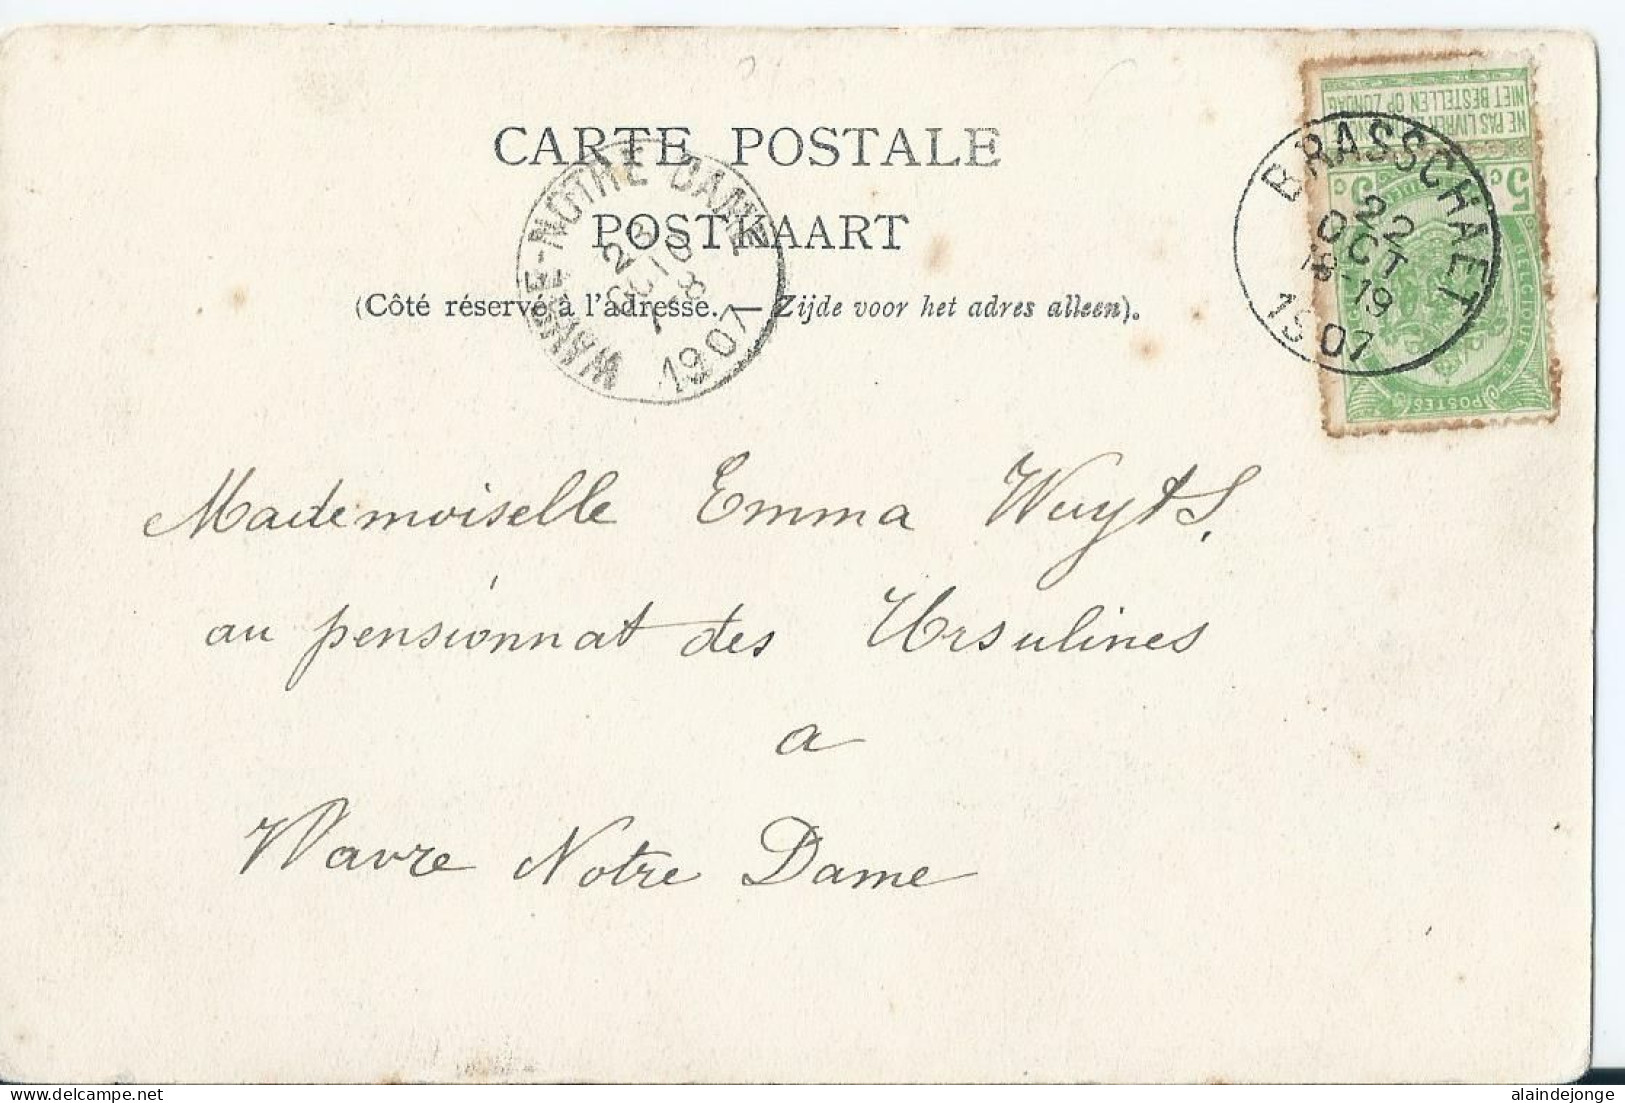 CARTE POSTALE
POSTKAART
(Côté réservé à l'adresse. — Zijde voor het adres alleen).
WAVRE-NOTRE-DAME
23
OCT
7-8
1907
NIET BESTELLEN OP ZONDAG
NE PAS LIVRER LE DIMANCHE
5 c 5 c
BELGIQUE
POSTES
BRASSCHAET
22
OCT
18-19
1907
Mademoiselle Emma Wuyts.
au pensionnat des Ursulines
a
Wavre Notre Dame
www.delcampe.net
alaindejonge